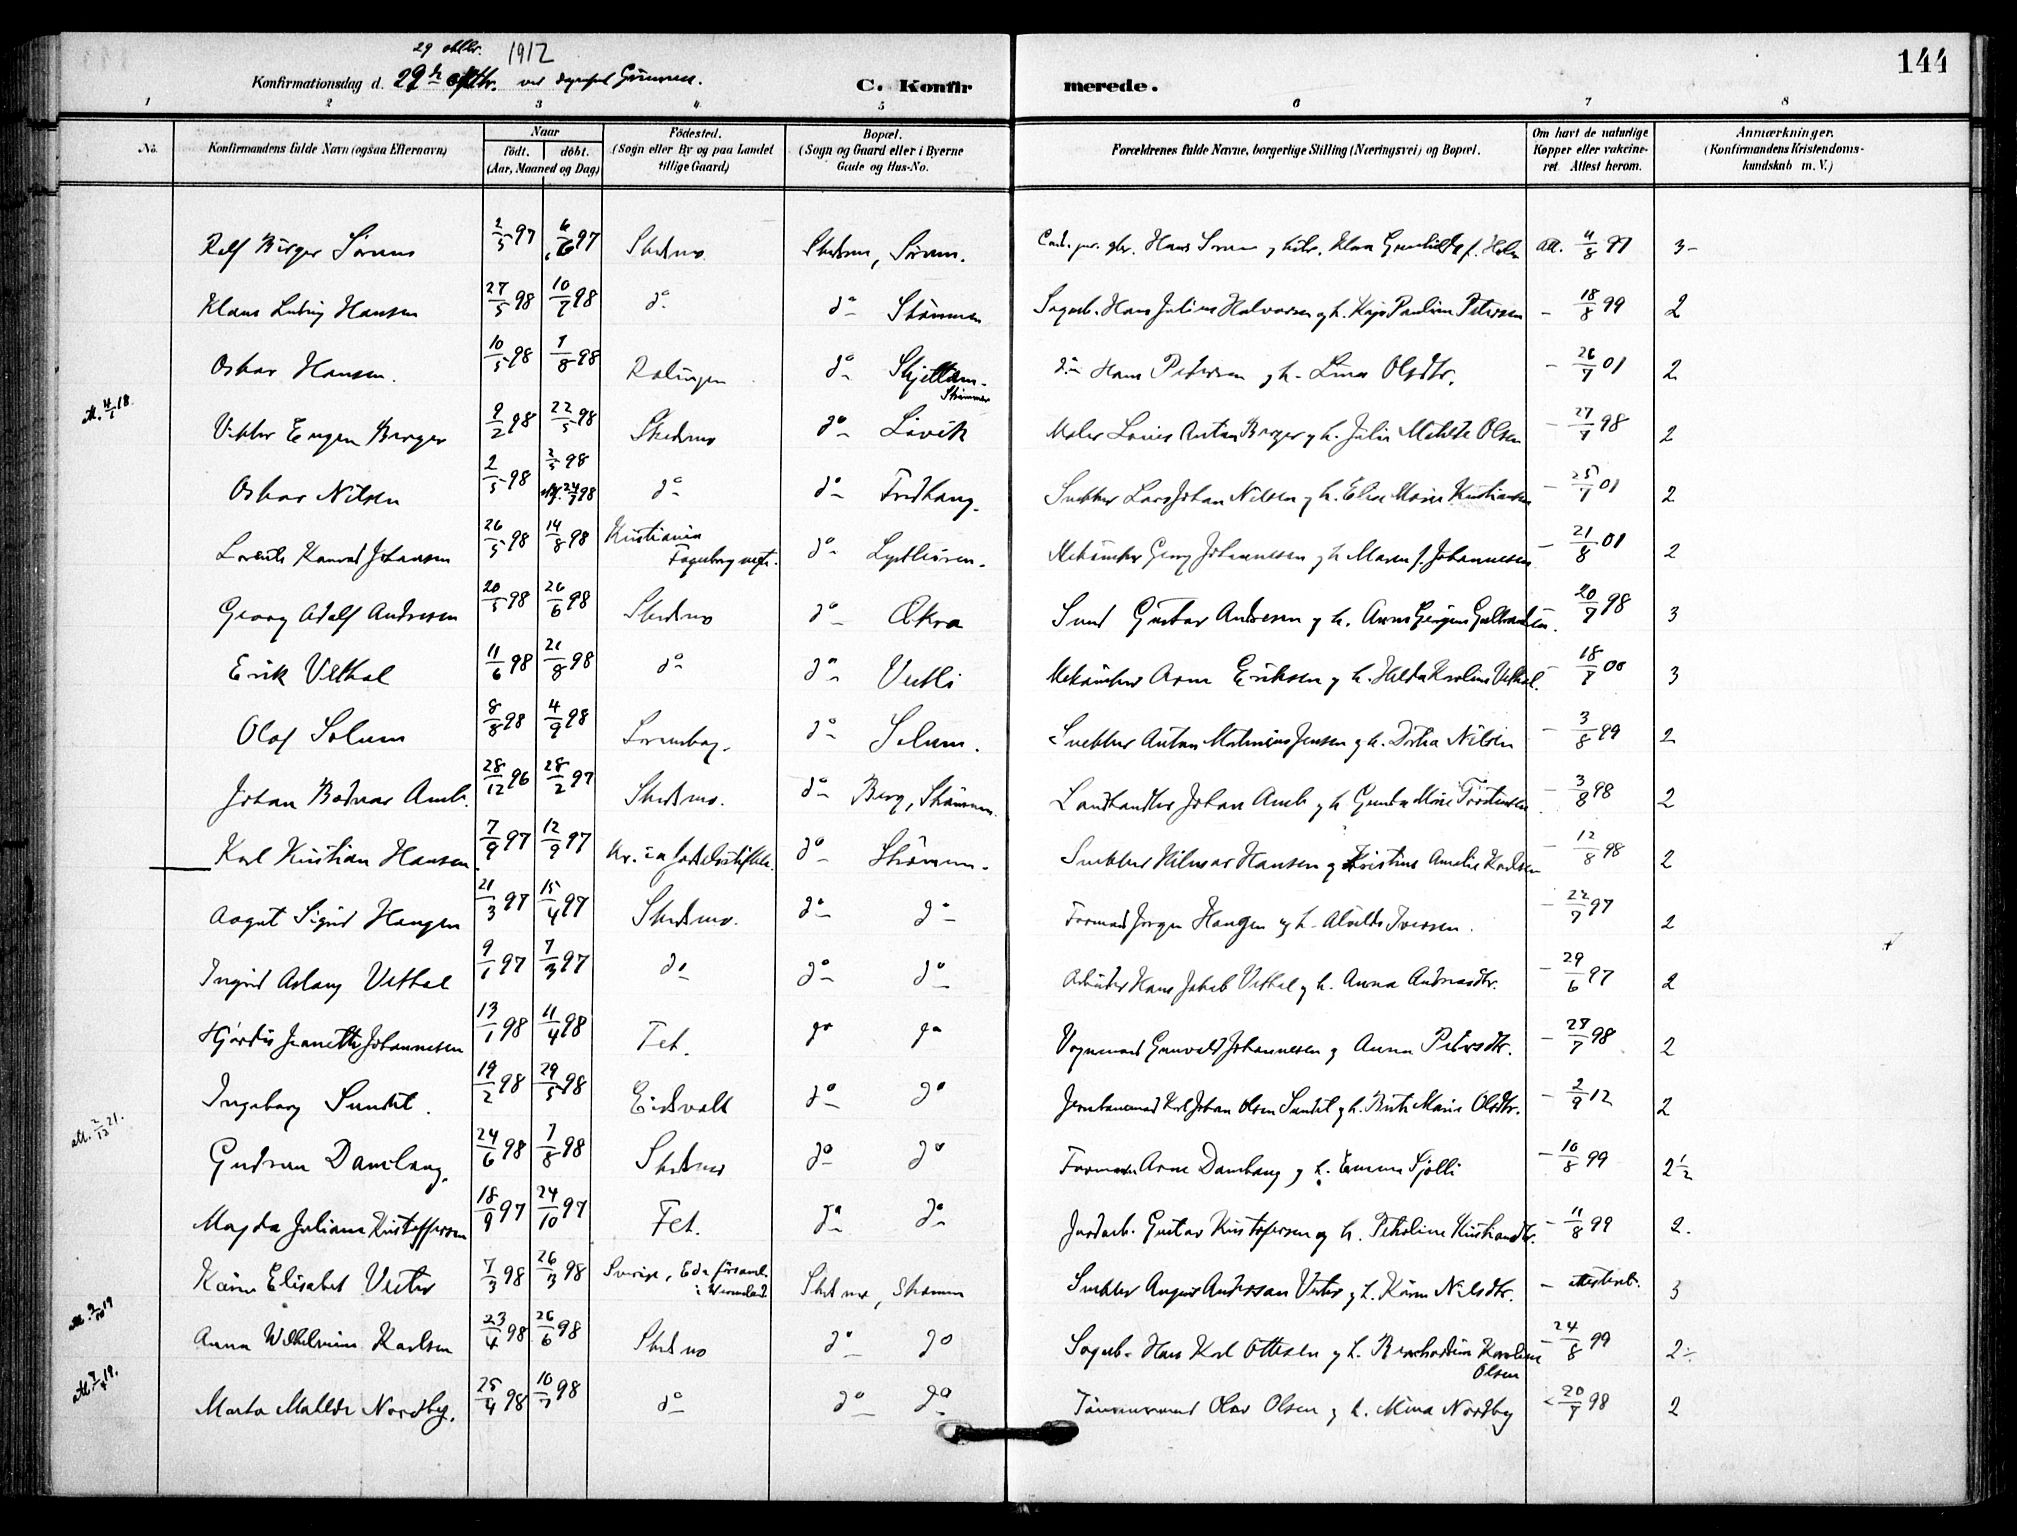 29 oktbr. 1912
144
Konfirmationsdag d. 29de oktbr. ved
C. Konfirmerede.
1 2 3 4 5 6 7 8
No.
Konfirmandens fulde Navn (ogsaa Efternavn)
Naar
født. døbt.
(Aar, Maaned og Dag)
Födested.
(Sogn eller By og paa Landet
tillige Gaard)
Bopæl.
(Sogn og Gaard eller i Byerne
Gade og Hus-No.
Forældrenes fulde Navne, borgerlige Stilling (Næringsvei) og Bopæl.
Om havt de naturlige
Kopper eller vakcine-
ret Attest herom.
Anmærkninger.
(Konfirmandens Kristendoms-
kundskab m. V.)
Rolf Birger Sörum 2/5 97 6/6 97 Skedsmo Skedsmo, Sörum. Hans Sörum og Klara f. Holm att. 11/8 97 3-
Klaus Ludvig Hansen 27/5 98 10/7 98 do do Strömmen Sagarb. Hans Julius Halvorsen og h. Kaja Pauline Petersen - 18/8 99 2
Oskar Hansen. 10/5 98 7/8 98 Rælingen do Skjetten-
Strömmen do Hans Petersen og h. Lina Olsdtr. - 26/7 01 2
att. 4/1 18. Viktor Eugen Berger 9/2 98 22/5 98 Skedsmo do Lövik Maler Louis Anton Berger og h. Julie Mathilde Olsen - 27/7 98 2
Oskar Nilsen 2/5 98 2/5 98
24/7 98 do do Fredhaug. Snekker Lars Johan Nilsen og h. Elise Marie Kristiansen - 25/7 01 2
Lorentz Konrad Johansen 26/5 98 14/8 98 Kristiania
Fagerborg do Mekaniker Georg Johannesen og h. Maren f. Johannesen - 21/8 01 2
Georg Adolf Andresen 20/5 98 26/6 98 Skedsmo do Økra Smed Gustav Andresen og h. Anna - 20/7 98 3
Erik Vethal 11/6 98 21/8 98 do do Vestli Mekaniker Arne Eriksen og h. Hilda Karoline Vethal. - 18/7 00 3
Olaf Solum 8/8 98 4/9 98 Lörenskog. do Solum. Snekker Anton Jensen og h. Dorthea Nilsen - 3/8 99 2
Johan Bodvar Amb. 28/12 96 28/2 97 Skedsmo. do Berg, Strömmen. Landhandler Johan Amb og h. - 3/8 98 2
Karl Kristian Hansen. 7/9 97 12/9 97 Kr.ia födselsstiftelse. do Strömmen. Snekker Hilmar Hansen og Kristine Amalie Karlsen - 12/8 98 2
Aagot Sigrid Haugen 21/3 97 15/4 97 Skedsmo. do do Formand Jörgen Haugen og h. Alvilde Iversen. - 22/7 97 2
Ingrid Aslaug Vethal 9/1 97 7/3 97 do do do Arbeider Hans Jakob Vethal og h. Anna Andreasdtr. - 29/6 97 2
Hjördis Jeanette Johannesen 13/1 98 11/4 98 Fet. do do Vognmand Gunvald Johannesen og Anna Petersdtr. - 28/7 98 2
Ingeborg Sundet. 19/2 98 29/5 98 Eidsvold do do Jernbanemand Karl Johan Olsen Sundet og h. Berte Marie Olsdtr. - 2/9 12 2
att. 2/12 21. Gudrun Damhaug. 24/6 98 7/8 98 Skedsmo do do Formand Arne Damhaug og h. Emma Sjölli - 10/8 99 2½
Magda Juliane Kristoffersen 18/9 97 24/10 97 Fet. do do Jordarb. Gustav Kristofersen og h. Petroline Kristiansdtr. - 11/8 99 2.
Karin Elisabet Vester 7/3 98 26/3 98 Sverige, Eda församl.
i Wermland Skedsmo, Strömmen Snekker August Andersson Vester og h. Karin Nilsdtr. - attestert. 3
att. 9/10 19 Anna Wilhelmine Karlsen 23/4 98 26/6 98 Skedsmo do do Sagarb. Hans Karl Ottesen og h. Bernhardine Karoline
Olsen - 24/8 99 2
att. 7/4 19. Marta Matilde Nordby. 25/4 98 10/7 98 do do do Tömmermand Olav Olsen og h. Mina Nordby - 20/7 98 2